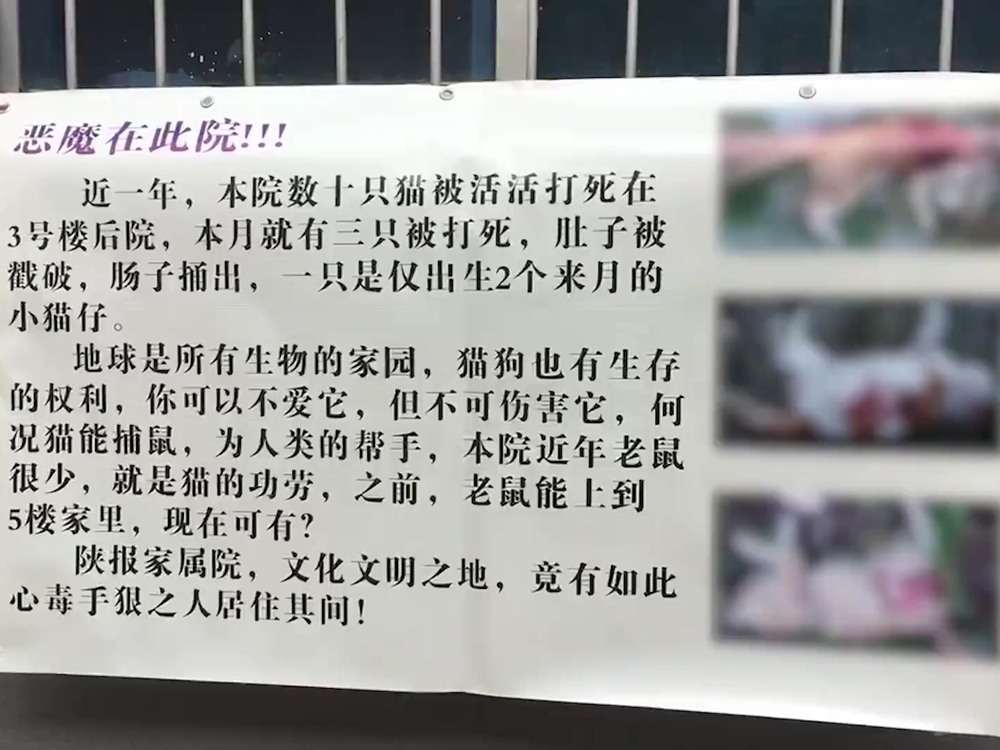 恶魔在此院!!!
近一年，本院数十只猫被活活打死在
3号楼后院，本月就有三只被打死，肚子被
戳破，肠子捅出，一只是仅出生2个来月的
小猫仔。
地球是所有生物的家园，猫狗也有生存
的权利，你可以不爱它，但不可伤害它，何
况猫能捕鼠，为人类的帮手，本院近年老鼠
很少，就是猫的功劳，之前，老鼠能上到
5楼家里，现在可有?
陕报家属院，文化文明之地，竟有如此
心毒手狠之人居住其间!